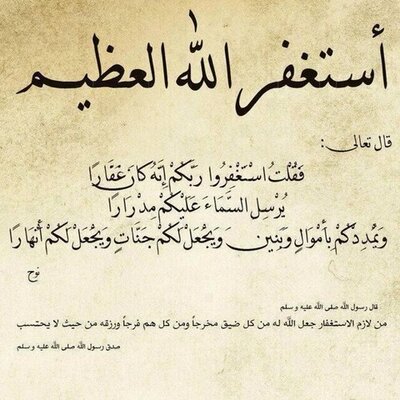 أستغفر الله العظيم
قال تعالى :
فَقُلْتُ اسْتَغْفِرُوا رَبَّكُمْ إِنَّهُ كَانَ غَفَّارًا
يُرْسِلِ السَّمَاءَ عَلَيْكُمْ مِدْرَارًا
وَيُمْدِدْكُمْ بِأَمْوَالٍ وَبَنِينَ وَيَجْعَلْ لَكُمْ جَنَّاتٍ وَيَجْعَلْ لَكُمْ أَنْهَارًا
نوح
قال رسول الله صلى الله عليه و سلم
من لازم الاستغفار جعل الله له من كل ضيق مخرجاً ومن كل هم فرجاً ورزقه من حيث لا يحتسب
صدق رسول الله صلى الله عليه و سلم